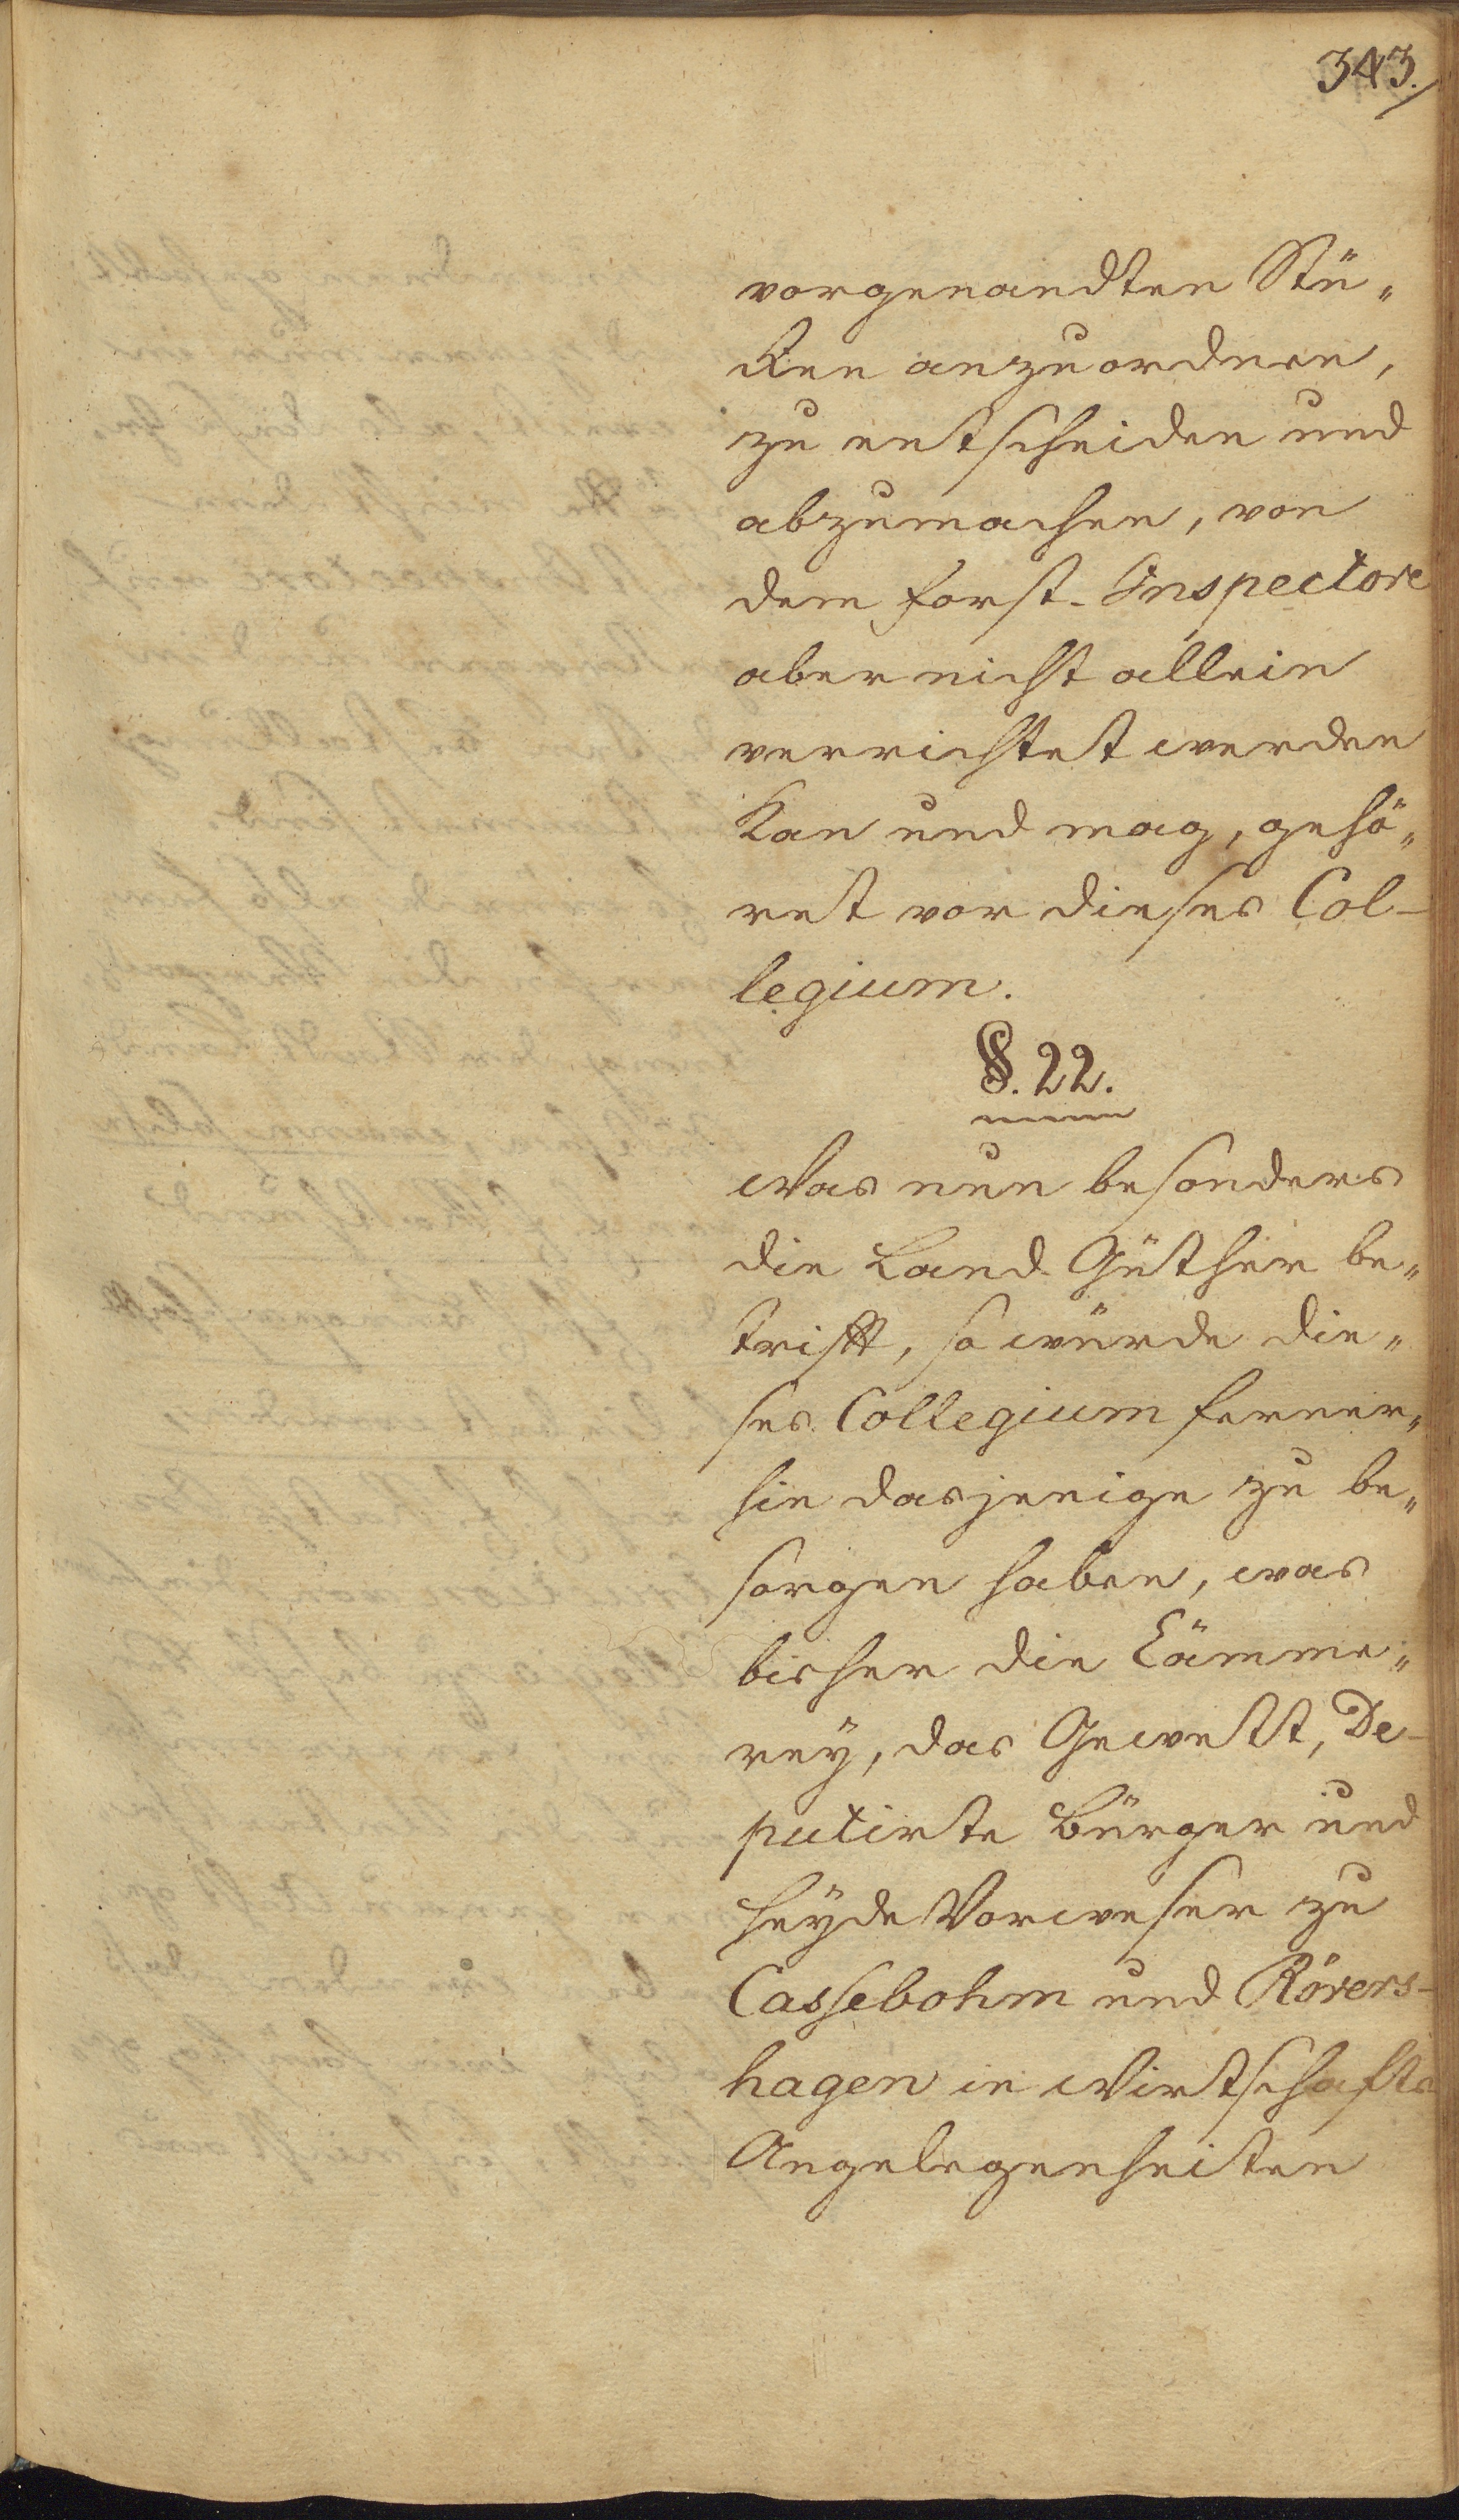 343.
vorgenandten Stü„
cken anzuordnen,
zu entscheiden und
abzumachen, von
dem Forst-Inspectore
aber nicht allein
verrichtet werden
kan und mag, gehö„
ret vor dieses Col-
legium.
§. 22.
Was nun besonders
die Land-Güther be„
trifft, so würde die„
ses Collegium ferner„
hin dasjenige zu be„
sorgen haben, was
bisher die Cämme„
rey, das Gewett, De-
putirte Bürger und
Heyde Vorweser zu
Cassebohm und Rövers-
hagen in Wirtschafts
Angelegenheiten